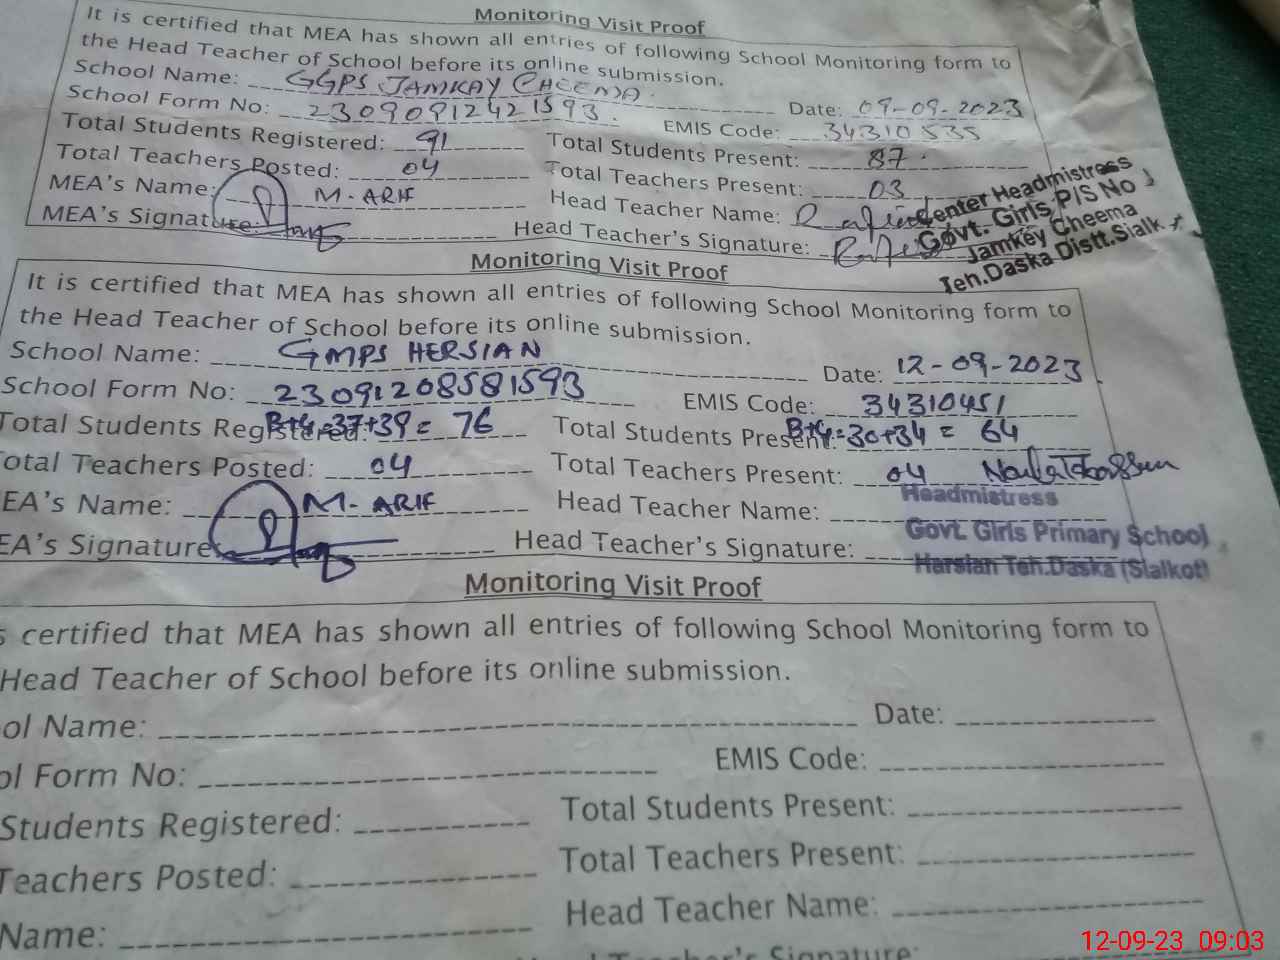 Monitoring Visit Proof
It is certified that MEA has shown all entries of following School Monitoring form to
the Head Teacher of School before its online submission.
School Name: GGPS JAMKAY CHEEMA Date: 09-09-2023
School Form No: 23090912421593 EMIS Code: 34310535
Total Students Registered: 91 Total Students Present: 87
Total Teachers Posted: 04 Total Teachers Present: 03
MEA's Name: M. ARIF Head Teacher Name:
MEA's Signature: Head Teacher's Signature:
Center Headmistress
Govt. Girls P/S No
Jamkey Cheema
Teh.Daska Distt.Sialk
Monitoring Visit Proof
It is certified that MEA has shown all entries of following School Monitoring form to
the Head Teacher of School before its online submission.
School Name: GMPS HERSIAN Date: 12-09-2023
School Form No: 23091208581593 EMIS Code: 34310451
Total Students Registered: B+G=37+39= 76 Total Students Present: B+G=30+34= 64
otal Teachers Posted: 04 Total Teachers Present: 04
EA's Name: M. ARIF Head Teacher Name:
EA's Signature Head Teacher's Signature:
Headmistress
Govt. Girls Primary School
Harsian Teh.Daska (Sialkot)
Monitoring Visit Proof
s certified that MEA has shown all entries of following School Monitoring form to
Head Teacher of School before its online submission.
ol Name: Date:
ol Form No: EMIS Code:
Students Registered: Total Students Present:
Teachers Posted: Total Teachers Present:
Name: Head Teacher Name:
Teacher's Signature:
12-09-23 09:03